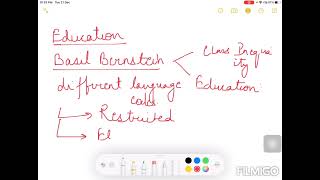 Education
Basil Bernstein < Class Inequality
Education
different language codes
→ Restricted
→ El
FILMIGO